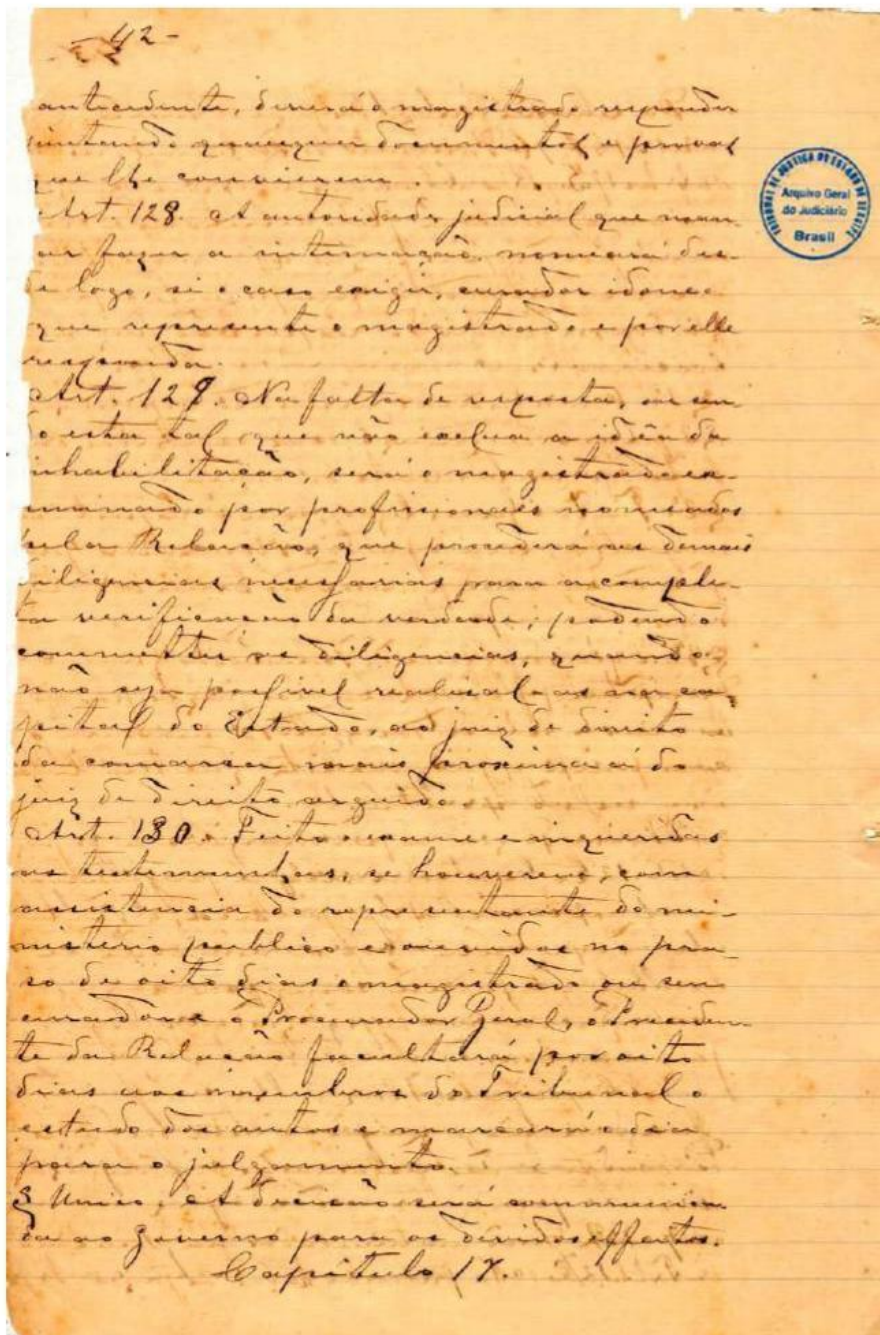 - 42 -
antecedente, deverá o magistrado responder
juntando quaesquer documentos e provas
que lhe convierem.
Art. 128. A autoridade judicial que man-
dar fazer a intimação, nomeará des-
de logo, si o caso exigir, curador idoneo
que represente o magistrado e por elle
responda.
Art. 129. Na falta de resposta, ou sen-
do esta tal que não exclua a idéa da
inhabilitação, será o magistrado exa-
minado por profissionaes nomeados
pela Relação, que procederá as demais
diligencias necessarias para a comple-
ta verificação da verdade, podendo
commetter as diligencias, quando
não seja possivel realisal-as na ca-
pital do Estado, ao juiz de direito
da comarca mais proxima á do
juiz de direito arguido.
Art. 130. Feito o exame e inqueridas
as testemunhas, se houverem, com
assistencia do representante do mi-
nisterio publico e ouvidos no pra
so de oito dias o magistrado ou seu
curador e o Procurador Geral, o Presiden-
te da Relação facultará por oito
dias aos membros do Tribunal o
estudo dos autos e marcará o dia
para o julgamento.
§ Unico. A decisão será communica-
da ao Governo para os devidos effeitos.
Capitulo 17.
TRIBUNAL DE JUSTIÇA DO ESTADO DE SERGIPE
Arquivo Geral
do Judiciário
Brasil